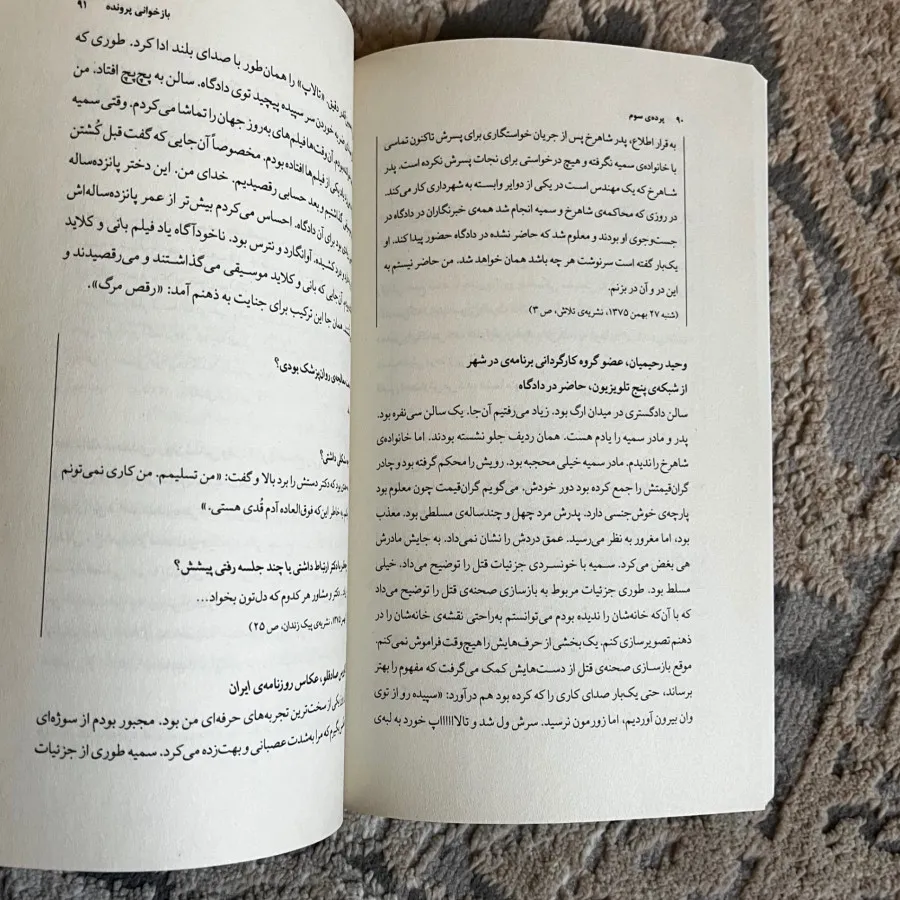 ۹۰ پرده‌ی سوم
به قرار اطلاع، پدر شاهرخ پس از جریان خواستگاری برای پسرش تاکنون تماسی
با خانواده‌ی سمیه نگرفته و هیچ درخواستی برای نجات پسرش نکرده است. پدر
شاهرخ که یک مهندس است در یکی از دوایر وابسته به شهرداری کار می‌کند.
در روزی که محاکمه‌ی شاهرخ و سمیه انجام شد همه‌ی خبرنگاران در دادگاه در
جست‌وجوی او بودند و معلوم شد که حاضر نشده در دادگاه حضور پیدا کند. او
یک‌بار گفته است سرنوشت هر چه باشد همان خواهد شد. من حاضر نیستم به
این در و آن در بزنم.
(شنبه ۲۷ بهمن ۱۳۷۵، نشریه‌ی تلاش، ص ۳)
وحید رحیمیان، عضو گروه کارگردانی برنامه‌ی در شهر
از شبکه‌ی پنج تلویزیون، حاضر در دادگاه
سالن دادگستری در میدان ارگ بود. زیاد می‌رفتیم آن‌جا. یک سالن سی‌نفره بود.
پدر و مادر سمیه را یادم هست. همان ردیف جلو نشسته بودند. اما خانواده‌ی
شاهرخ را ندیدم. مادر سمیه خیلی محجبه بود. رویش را محکم گرفته بود و چادر
گران‌قیمتش را جمع کرده بود دور خودش. می‌گویم گران‌قیمت چون معلوم بود
پارچه‌ی خوش‌جنسی دارد. پدرش مرد چهل و چندساله‌ی مسلطی بود. معذب
بود، اما مغرور به نظر می‌رسید. عمق دردش را نشان نمی‌داد. به جایش مادرش
هی بغض می‌کرد. سمیه با خونسردی جزئیات قتل را توضیح می‌داد. خیلی
مسلط بود. طوری جزئیات مربوط به بازسازی صحنه‌ی قتل را توضیح می‌داد
که با آن‌که خانه‌شان را ندیده بودم می‌توانستم به‌راحتی نقشه‌ی خانه‌شان را در
ذهنم تصویرسازی کنم. یک بخشی از حرف‌هایش را هیچ‌وقت فراموش نمی‌کنم.
موقع بازسازی صحنه‌ی قتل از دست‌هایش کمک می‌گرفت که مفهوم را بهتر
برساند، حتی یک‌بار صدای کاری را که کرده بود هم درآورد: «سپیده رو از توی
وان بیرون آوردیم، اما زورمون نرسید. سرش ول شد و تالاااااپ خورد به لبه‌ی
بازخوانی پرونده ۹۱
دقیق. «تالاپ» را همان‌طور با صدای بلند ادا کرد. طوری که
خوردن سر سپیده پیچید توی دادگاه. سالن به پچ‌پچ افتاد. من
آن‌وقت‌ها فیلم‌های به‌روز جهان را تماشا می‌کردم. وقتی سمیه
یکی از فیلم‌ها افتاده بودم. مخصوصاً آن‌جایی که گفت قبل کُشتن
گذاشتیم و بعد حسابی رقصیدیم. خدای من. این دختر پانزده‌ساله
بود برای آن دادگاه. احساس می‌کردم بیش‌تر از عمر پانزده‌ساله‌اش
کشیده. آوانگارد و نترس بود. ناخودآگاه یاد فیلم بانی و کلاید
آن‌جایی که بانی و کلاید موسیقی می‌گذاشتند و می‌رقصیدند و
همان جا این ترکیب برای جنایت به ذهنم آمد: «رقص مرگ».
معالجه‌ی روان‌پزشک بودی؟
مشکلی داشتی؟
بود که دکتر دستش را برد بالا و گفت: «من تسلیمم. من کاری نمی‌تونم
به خاطر این‌که فوق‌العاده آدم قُدی هستی.»
با دکتر ارتباط داشتی یا چند جلسه رفتی پیشش؟
دکتر و مشاور هر کدوم که دل‌تون بخواد...
نشریه‌ی پیک زندان، ص ۲۵)
صادقلو، عکاس روزنامه‌ی ایران
یکی از سخت‌ترین تجربه‌های حرفه‌ای من بود. مجبور بودم از سوژه‌ای
که مرا به‌شدت عصبانی و بهت‌زده می‌کرد. سمیه طوری از جزئیات